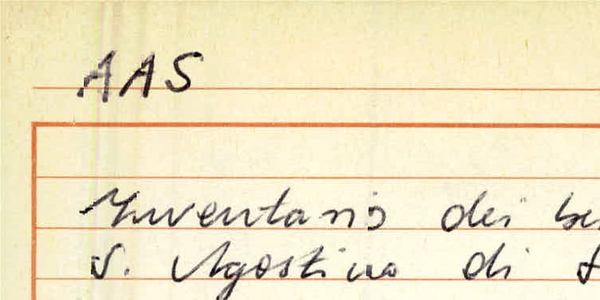 AAS
Inventario dei
S. Agostino di